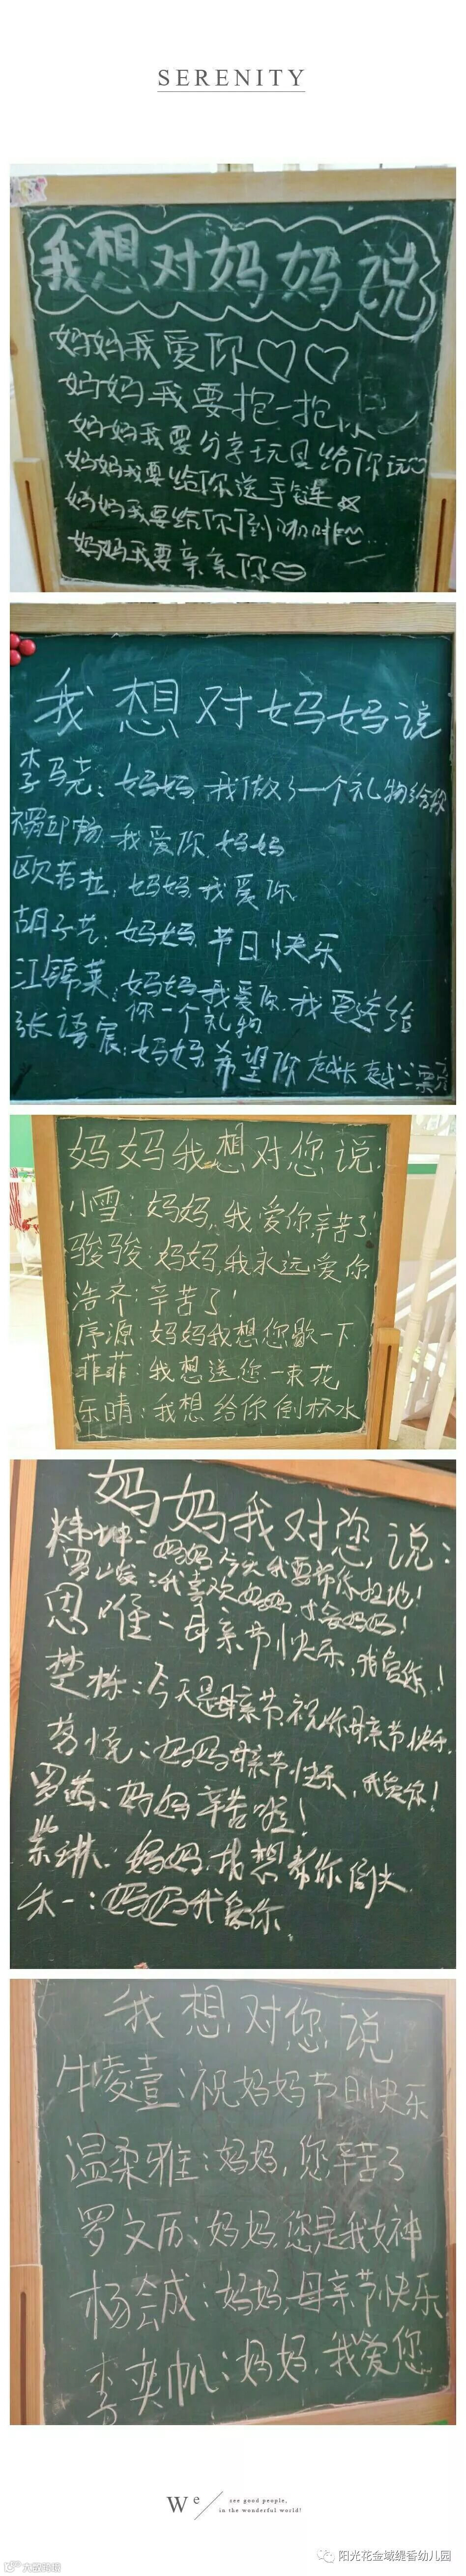 SERENITY
我想对妈妈说
妈妈我爱你
妈妈我要抱一抱
妈妈我要分享玩具给你玩
妈妈我要给你送手链
妈妈我要给你倒
妈妈我要亲亲你
我想对妈妈说
李玛尧：妈妈，我做了一个礼物给你
我爱你，妈妈
欧若拉：妈妈，我爱你
胡子艺：妈妈，节日快乐
江锦菜：妈妈我爱你，我要送给
你一个礼物
张语宸：妈妈，希望你越长越漂亮
妈妈我想对您说：
小雪：妈妈，我爱你辛苦了！
骏骏：妈妈，我永远爱你
浩齐：辛苦了！
序源：妈妈我想您歇一下.
菲菲：我想送您一束花
乐晴：我想给你倒杯水
妈妈我对您说：
妈妈今天我要帮你扫地！
我喜欢妈妈，我爱妈妈！
恩唯：母亲节快乐，我爱你！
楚栋：今天是母亲节祝你母亲节快乐.
若悦：妈妈母亲节快乐，我爱你！
妈妈辛苦啦！
紫琳：妈妈我想帮你倒水
禾一：妈妈我爱你
我想对您说
牛凌壹：祝妈妈节日快乐
温柔雅：妈妈，您辛苦了
罗文历：妈妈，您是我女神
杨会成：妈妈，母亲节快乐
李奕帆：妈妈，我爱您
We
see good people,
in the wonderful world!
阳光花金域缇香幼儿园